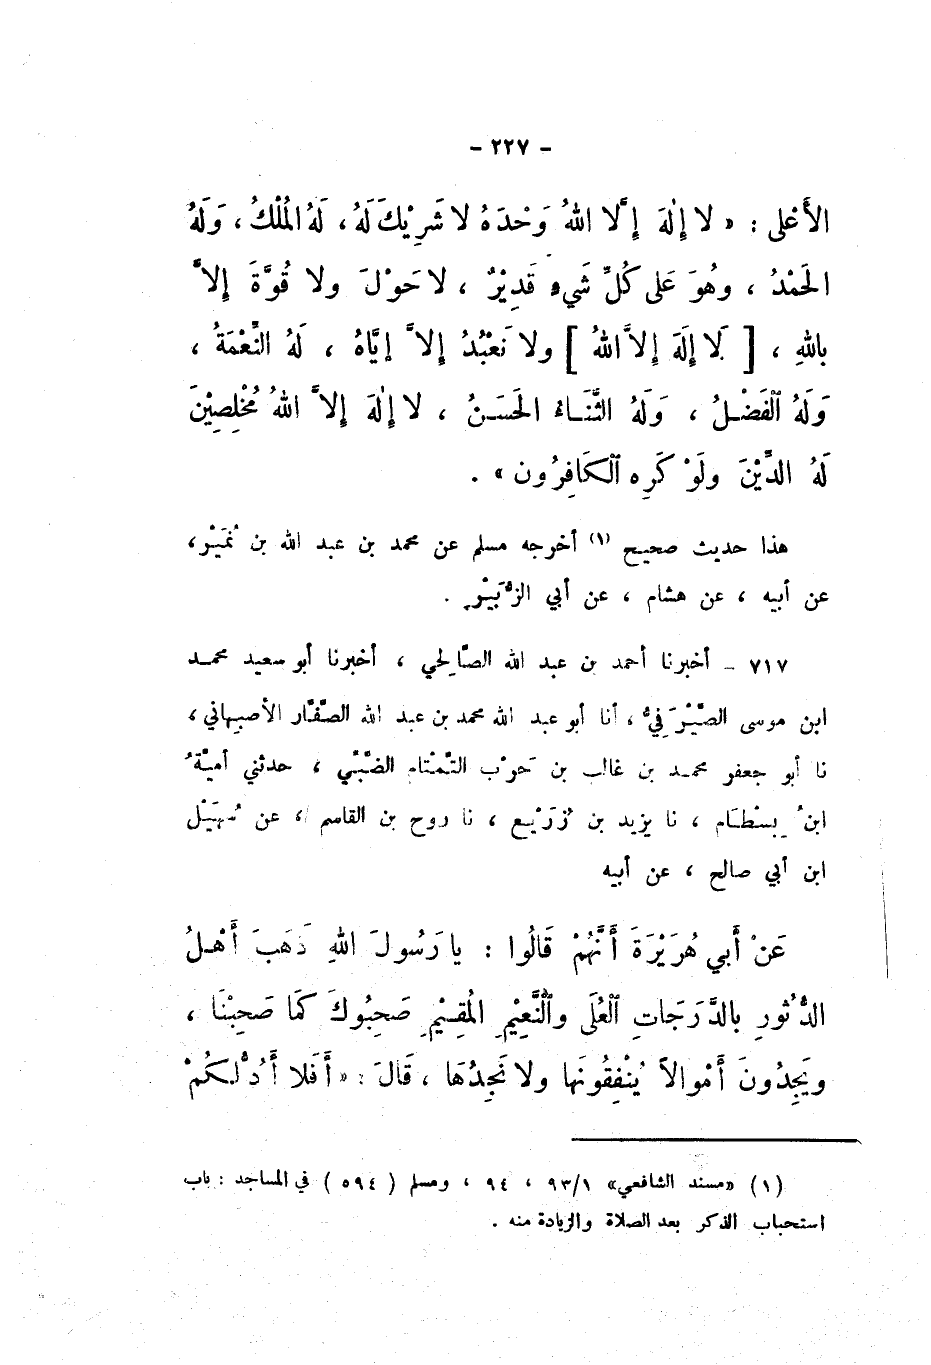 - ٢٢٧ -
الأَعْلى : « لا إِلٰهَ إِلَّا اللهُ وَحْدَهُ لا شَرِيْكَ لَهُ ، لَهُ المُلْكُ ، وَلَهُ
الحَمْدُ ، وهُوَ عَلى كُلِّ شَيءٍ قَدِيْرٌ ، لا حَوْلَ ولا قُوَّةَ إِلاَّ
باللهِ ، [ لَا إِلَهَ إِلاَّ اللهُ ] ولا نَعْبُدُ إِلاَّ إيَّاهُ ، لَهُ النِّعْمَةُ ،
وَلَهُ ٱلفَضْلُ ، وَلَهُ الثَّنَاءُ الحَسَنُ ، لا إِلٰهَ إِلاَّ اللهُ مُخْلِصِيْنَ
لَهُ الدِّيْنَ ولَوْ كَرِه ٱلكَافِرُون » .
هذا حديث صحيح (١) أخرجه مسلم عن محمد بن عبد الله بن نُمَيْر ،
عن أبيه ، عن هشام ، عن أبي الزُّبَيْر .
٧١٧ - أخبرنا أحمد بن عبد الله الصَّالِحي ، أخبرنا أبو سعيد محمد
ابن موسى الصَّيْرَفيُّ ، أنا أبو عبد الله محمد بن عبد الله الصَّفَّار الأصبهاني ،
نا أبو جعفر محمد بن غالب بن حَرْب التَّمْتَام الضَّبِّي ، حدثني أميَّةُ
ابنُ بِسْطَام ، نا يزيد بن زُرَيْع ، نا روح بن القاسم ، عن سُهَيْل
ابن أبي صالح ، عن أبيه
عَنْ أَبي هُرَيْرَةَ أَنَّهُمْ قَالُوا : يا رَسُولَ اللهِ ذَهَبَ أَهْلُ
الدُّثُورِ بِالدَّرَجَاتِ ٱلعُلَى وٱلنَّعِيْمِ المُقِيْمِ صَحِبُوكَ كَمَا صَحِبْنَا ،
ويَجِدُونَ أَمْوالاً يُنْفِقُونَها ولا نَجِدُهَا ، قَالَ : « أَفَلا أَدُلُّكُمْ
(١) «مسند الشافعي» ٩٣/١ ، ٩٤ ، ومسلم ( ٥٩٤ ) في المساجد : باب
استحباب الذكر بعد الصلاة والزيادة منه .